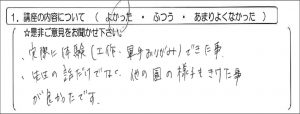 1. 講座の内容について ( よかった ・ ふつう ・ あまりよくなかった )
☆是非ご意見をお聞かせ下さい。
・実際に体験(工作・軍手おりがみ)できた事
・先生の話だけでなく、他の園の様子もきけた事
が良かったです。